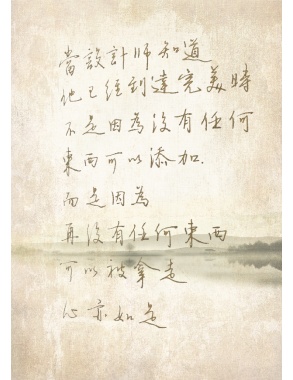 當設計師知道
他已經到達完美時
不是因為沒有任何
東西可以添加.
而是因為
再沒有任何東西
可以被拿走
心亦如是